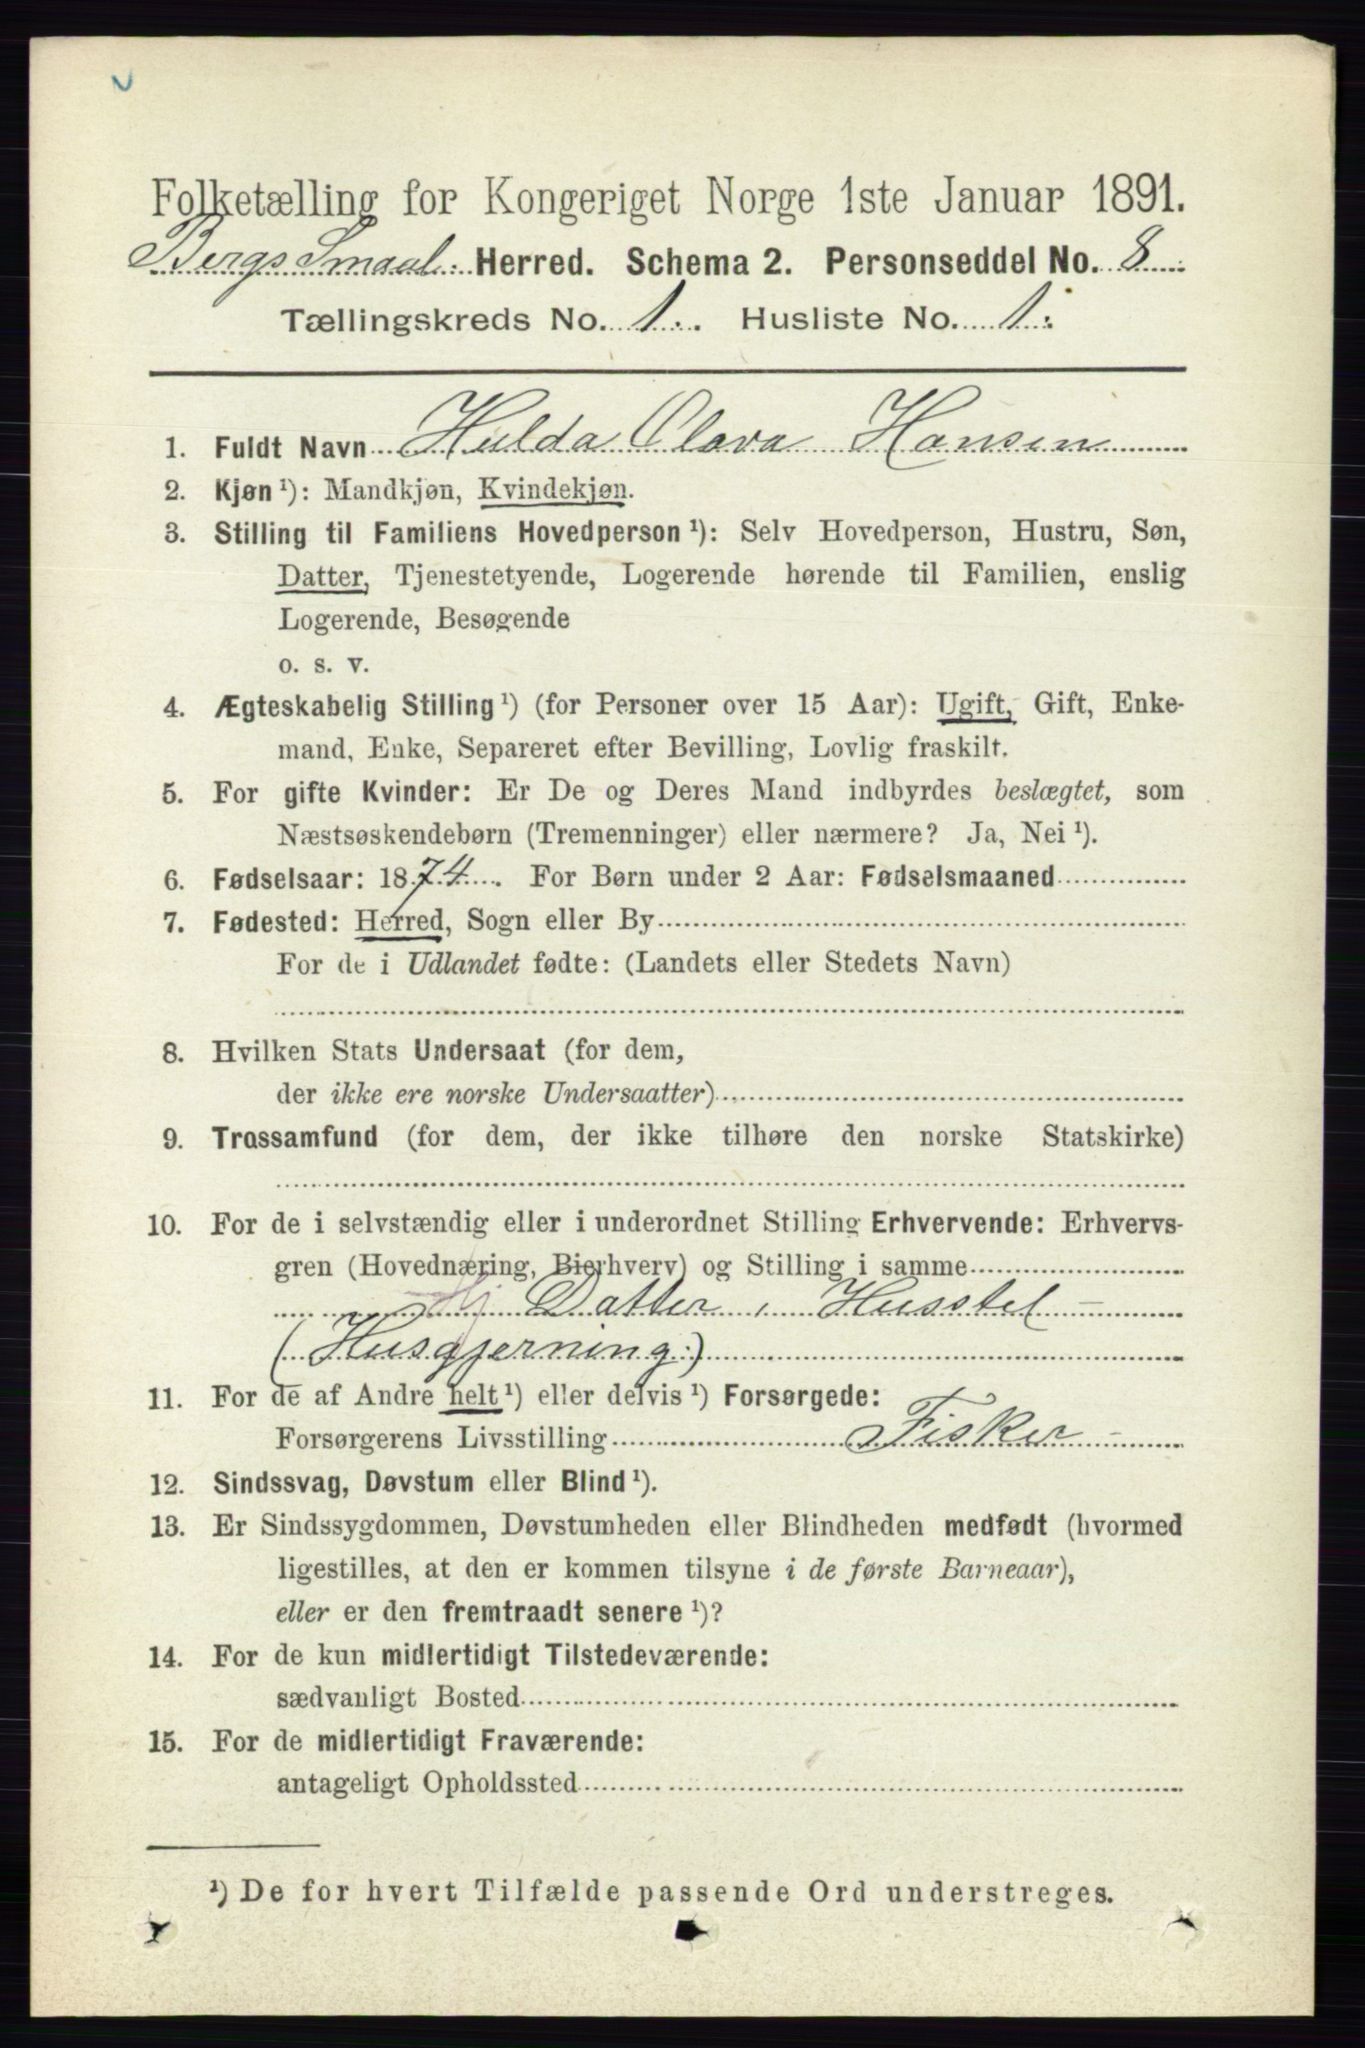 Folketælling for Kongeriget Norge 1ste Januar 1891.
Bergs Smaal. Herred. Schema 2. Personseddel No. 8
Tællingskreds No. 1. Husliste No. 1.
1. Fuldt Navn Hulda Olava Hansen
2. Kjøn ¹): Mandkjøn, Kvindekjøn.
3. Stilling til Familiens Hovedperson ¹): Selv Hovedperson, Hustru, Søn,
Datter, Tjenestetyende, Logerende hørende til Familien, enslig
Logerende, Besøgende
o. s. v.
4. Ægteskabelig Stilling ¹) (for Personer over 15 Aar): Ugift, Gift, Enke-
mand, Enke, Separeret efter Bevilling, Lovlig fraskilt.
5. For gifte Kvinder: Er De og Deres Mand indbyrdes beslægtet, som
Næstsøskendebørn (Tremenninger) eller nærmere? Ja, Nei ¹).
6. Fødselsaar: 1874. For Børn under 2 Aar: Fødselsmaaned
7. Fødested: Herred, Sogn eller By
For de i Udlandet fødte: (Landets eller Stedets Navn)
8. Hvilken Stats Undersaat (for dem,
der ikke ere norske Undersaatter)
9. Trossamfund (for dem, der ikke tilhøre den norske Statskirke)
10. For de i selvstændig eller i underordnet Stilling Erhvervende: Erhvervs-
gren (Hovednæring, Bierhverv) og Stilling i samme
Hj Datter, Husstel -
(Husgjerning.)
11. For de af Andre helt ¹) eller delvis ¹) Forsørgede:
Forsørgerens Livsstilling Fisker -
12. Sindssvag, Døvstum eller Blind ¹).
13. Er Sindssygdommen, Døvstumheden eller Blindheden medfødt (hvormed
ligestilles, at den er kommen tilsyne i de første Barneaar),
eller er den fremtraadt senere ¹)?
14. For de kun midlertidigt Tilstedeværende:
sædvanligt Bosted
15. For de midlertidigt Fraværende:
antageligt Opholdssted
¹) De for hvert Tilfælde passende Ord understreges.